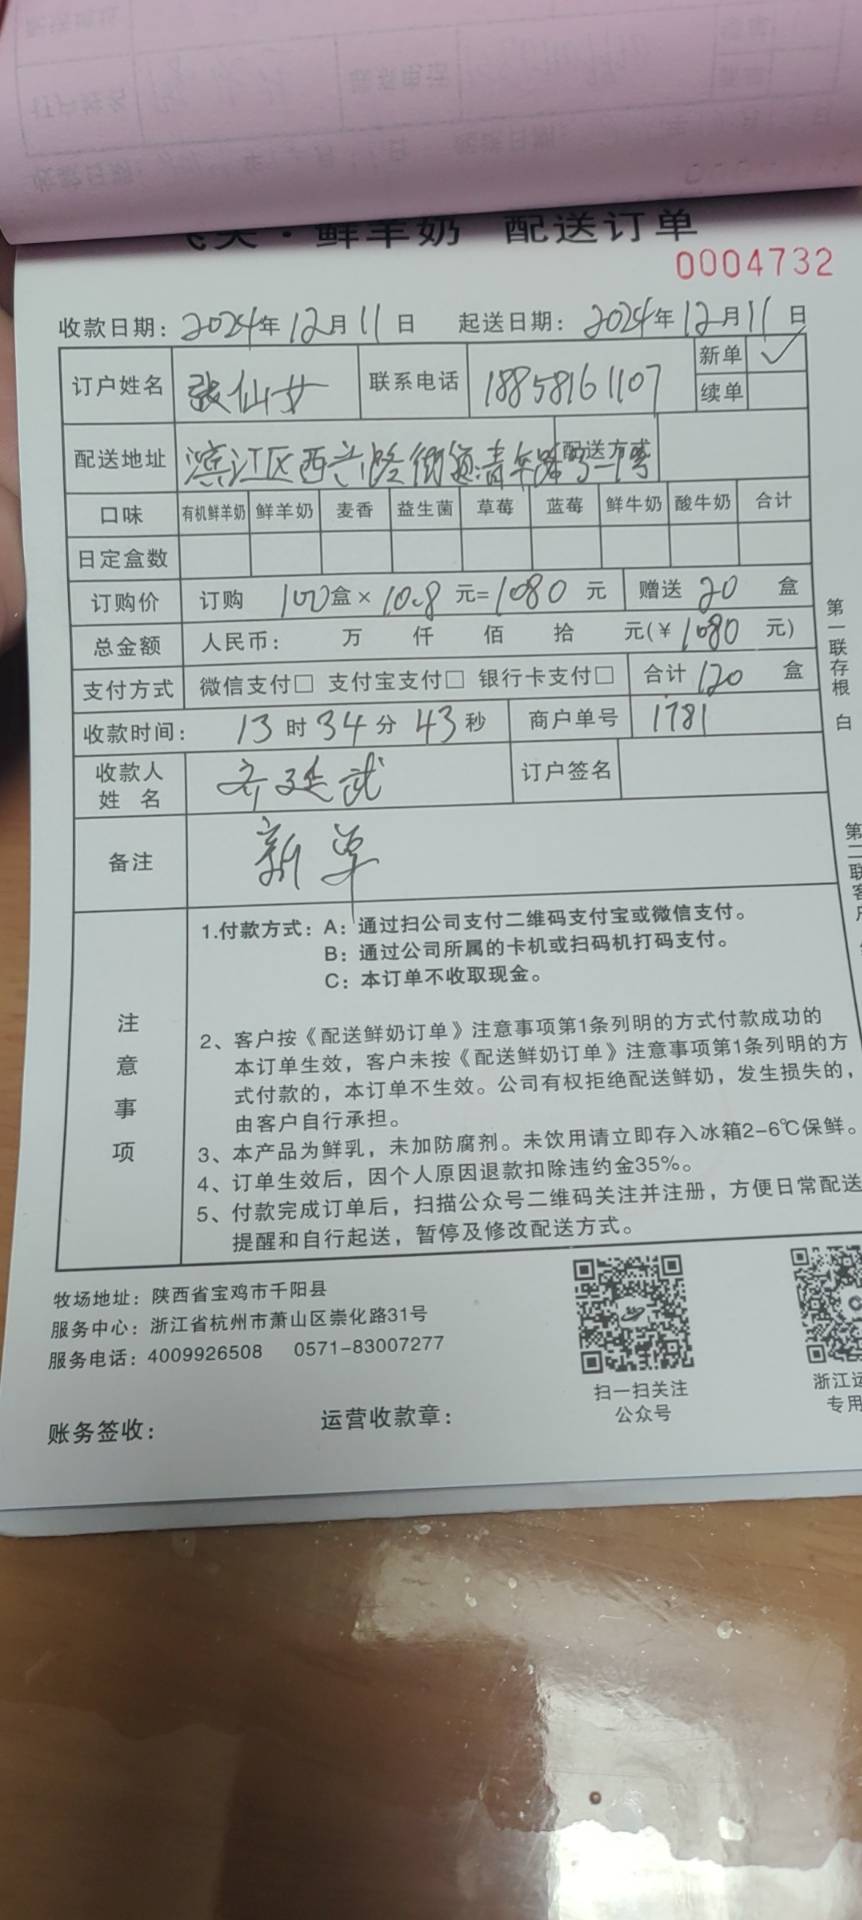 ·鲜羊奶 配送订单
0004732
收款日期：2024年12月11日 起送日期：2024年12月11日
订户姓名 张仙女 联系电话 18858161107 新单 ✓
续单
配送地址 滨江区西兴路街道青年路 配送方式
口味 有机鲜羊奶 鲜羊奶 麦香 益生菌 草莓 蓝莓 鲜牛奶 酸牛奶 合计
日定盒数
订购价 订购 100盒×10.8元=1080元 赠送 20 盒
总金额 人民币： 万 仟 佰 拾 元(¥1080元)
支付方式 微信支付□ 支付宝支付□ 银行卡支付□ 合计 120 盒
收款时间： 13时34分43秒 商户单号 1781
收款人
姓 名 齐廷武 订户签名
备注 新单
注意事项
1.付款方式：A：通过扫公司支付二维码支付宝或微信支付。
B：通过公司所属的卡机或扫码机打码支付。
C：本订单不收取现金。
2、客户按《配送鲜奶订单》注意事项第1条列明的方式付款成功的
本订单生效，客户未按《配送鲜奶订单》注意事项第1条列明的方
式付款的，本订单不生效。公司有权拒绝配送鲜奶，发生损失的，
由客户自行承担。
3、本产品为鲜乳，未加防腐剂。未饮用请立即存入冰箱2-6℃保鲜。
4、订单生效后，因个人原因退款扣除违约金35%。
5、付款完成订单后，扫描公众号二维码关注并注册，方便日常配送
提醒和自行起送，暂停及修改配送方式。
第一联存根 白
第二联客户
牧场地址：陕西省宝鸡市千阳县
服务中心：浙江省杭州市萧山区崇化路31号
服务电话：4009926508 0571-83007277
扫一扫关注
公众号
浙江运
专用
账务签收： 运营收款章：